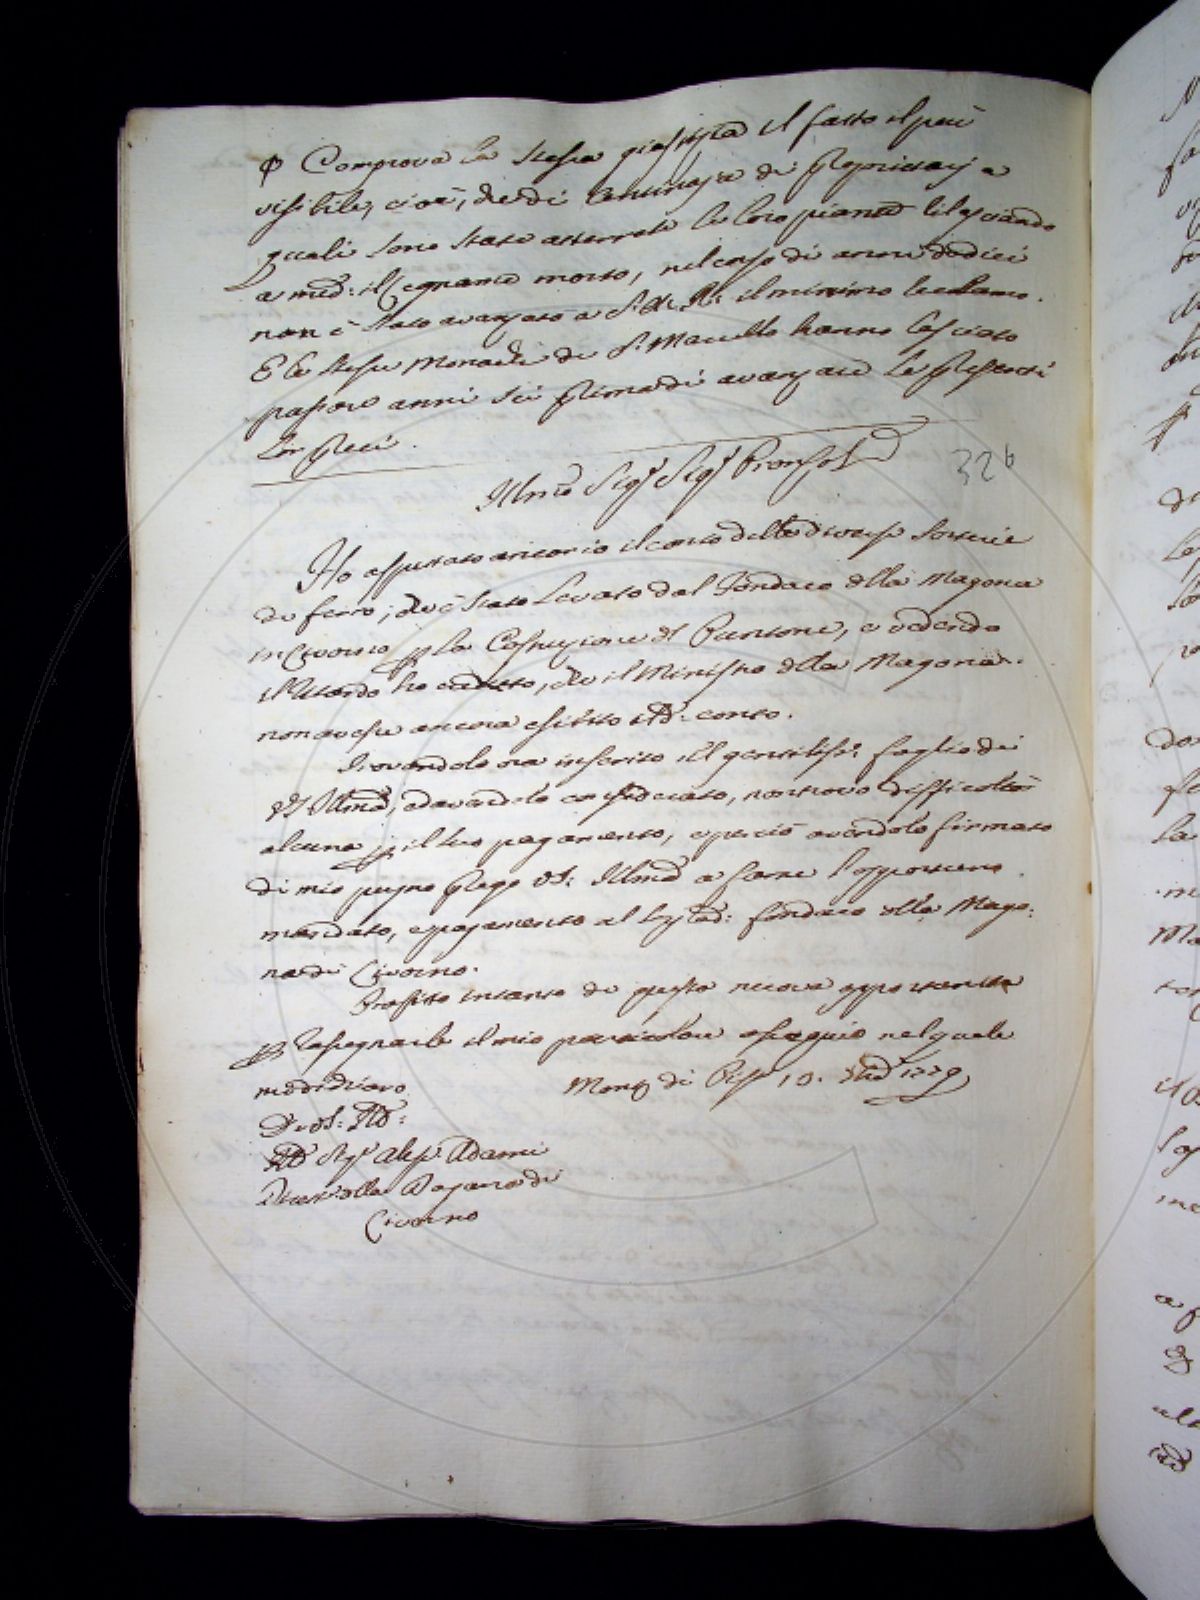 Comprova la stessa giustizia il fatto il più
visibile, cioè, che di centinaja di Proprietarj a
quali sono state atterrate le loro piante lasciando
a med: il legname morto, nel corso di anni dodici
non è stato avanzato a S. A. R. il minimo reclamo.
E le stesse Monache di S. Marcello hanno lasciato
passare anni sei prima di avanzare le presenti
lor preci.
Illmo Sigr Sigr Pron
32b
Ho aspettato ancor io il conto delle diverse sorte
di ferro, che è stato levato dal Fondaco della Magona
in Livorno per la Costruzione del Puntone, e vedendo
il ritardo ho creduto, che il Ministro della Magona
non avesse ancora esibito conto.
Trovandolo ora inserito nel gentiliss: foglio di
VS Illma, ed avendolo considerato, non trovo difficoltà
alcuna per il suo pagamento, e perciò avendolo firmato
di mio pugno prego VS: Illma a farne l'opportuno
mandato, e pagamento al Fondaco della Mago:
na di Livorno.
Profitto intanto di questa nuova opportunità
per rassegnarle il mio particolare ossequio nel quale
mi dichiaro
Di VS: Illma:
Monte di Pis 10.
Sigr Aless: Adami
della Dogana di
Livorno